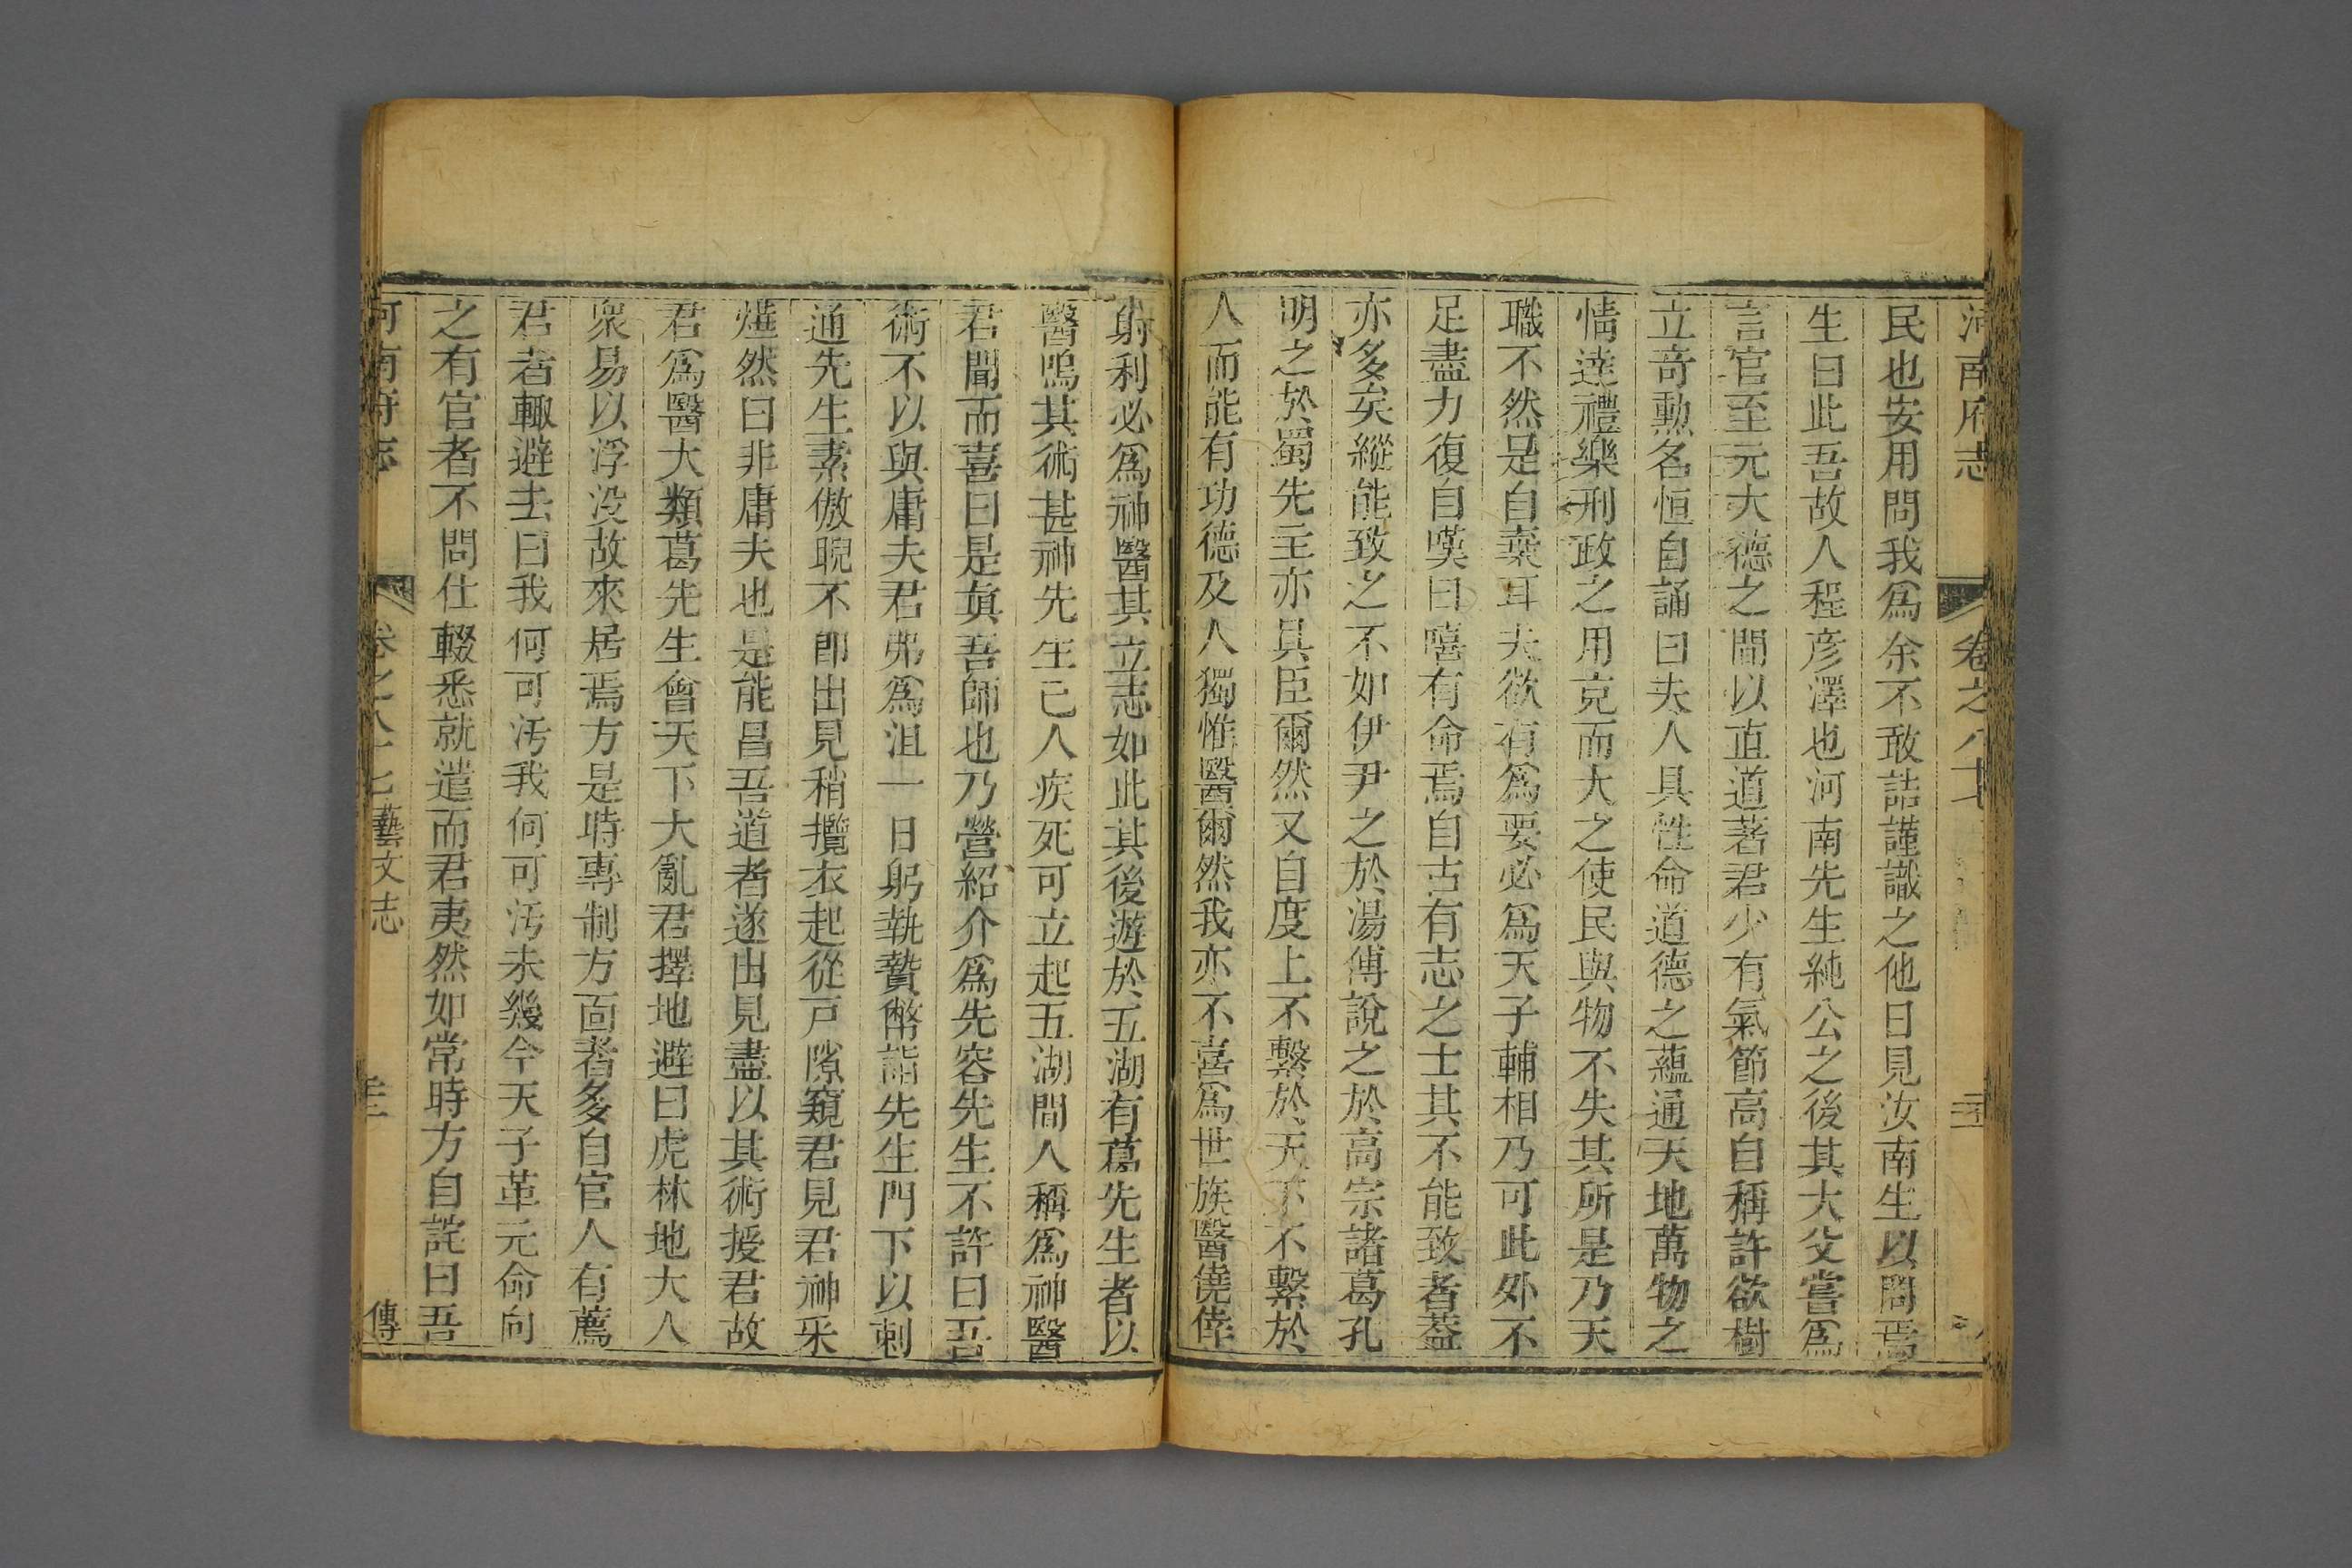 河南府志 卷之八十七
民也安用問我爲余不敢詰謹識之他日見汝南生以問焉
生曰此吾故人程彦澤也河南先生純公之後其大父嘗爲
言官至元大德之間以直道著君少有氣節高自稱許欲樹
立竒勲名恒自誦曰夫人具性命道德之蘊通天地萬物之
情達禮樂刑政之用克而大之使民與物不失其所是乃天
職不然是自棄耳夫欲有爲要必爲天子輔相乃可此外不
足盡力復自嘆曰嘻有命焉自古有志之士其不能致者葢
亦多矣縱能致之不如伊尹之於湯傅說之於高宗諸葛孔
明之於蜀先主亦具臣爾然又自度上不繫於天下不繫於
人而能有功德及人獨惟醫爾然我亦不喜爲世族醫僥倖
射利必爲神醫其立志如此其後遊於五湖有葛先生者以
醫鳴其術甚神先生已人疾死可立起五湖間人稱爲神醫
君聞而喜曰是眞吾師也乃營紹介爲先容先生不許曰吾
術不以與庸夫君弗爲沮一日躬執贄幣詣先生門下以刺
通先生素傲睨不卽出見稍攬衣起從戸隙窺君見君神采
煒然曰非庸夫也是能昌吾道者遂出見盡以其術授君故
君爲醫大類葛先生會天下大亂君擇地避曰虎林地大人
衆易以浮沒故來居焉方是時專制方面者多自官人有薦
君者輙避去曰我何可汚我何可汚未幾今天子革元命向
之有官者不問仕輟悉就遣而君夷然如常時方自詫曰吾
河南府志 卷之八十七 藝文志 傳